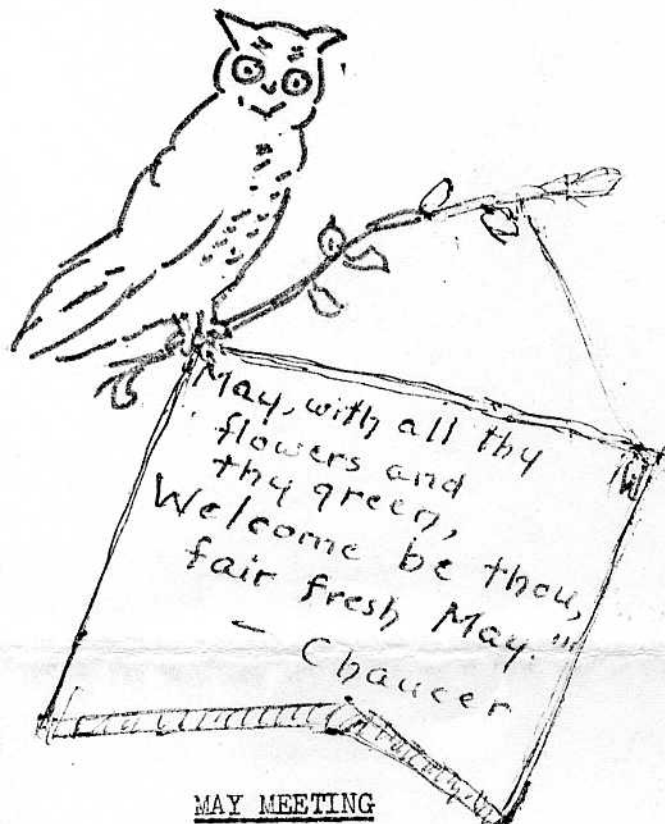 May, with all thy
flowers and
thy green,
Welcome be thou,
fair fresh May."
— Chaucer
MAY MEETING